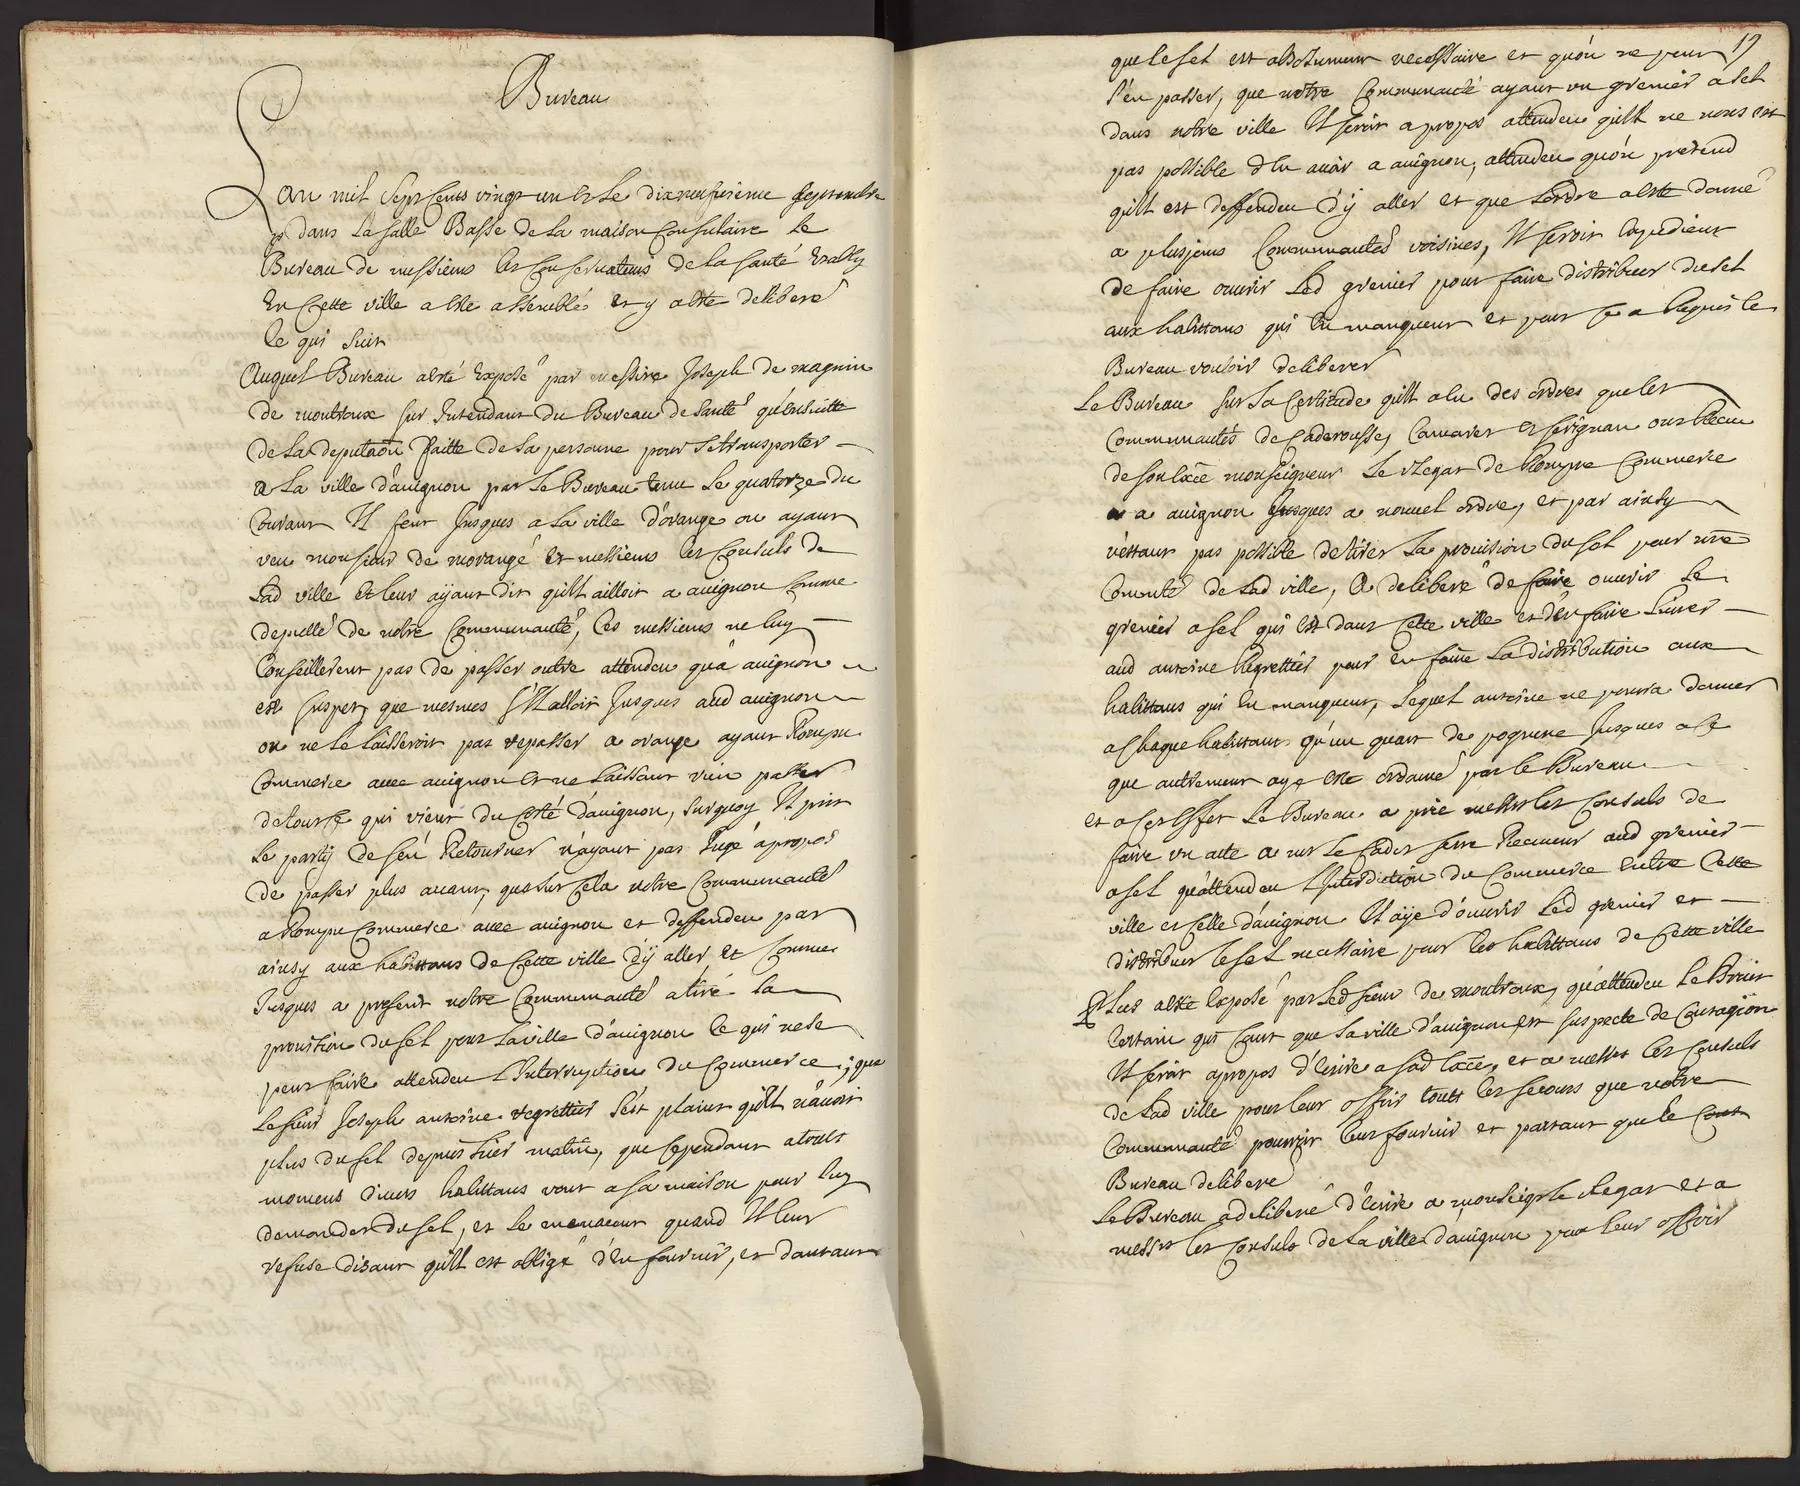 Bureau
Lan mil sept cents vingt un et le dixneufvieme septembre
dans la salle Basse de la maison Consulaire le
Bureau de messieurs les Conservateurs de la santé Estably
En Cette ville a esté assemblé et y a esté deliberé
le qui suit
Auquel Bureau a esté Exposé par messire Joseph de magnin
de montroux sur Intendant du Bureau de santé qu'ensuitte
de la deputaon faitte de sa personne pour se transporter
a La ville d'auignon par le Bureau tenu le quatorze du
Courant Il feut Jusques a la ville d'orange ou ayant
veu monsieur de morangé et messieurs les Consuls de
Lad ville et leur ayant dit quil ailloit a auignon Comme
deputté de notre Communauté, ces messieurs ne luy
Conseillerent pas de passer outre attendeu qu'a auignon
est suspet, que mesmes s'Il alloit Jusques aud auignon
on ne le laisseroit pas repasser a orange ayant Rompu
Commerce auec auignon et ne laissant rien passer
de tout ce qui vient du Costé d'auignon, surquoy Il prit
le party de s'en Retourner n'ayant pas Jugé a propos
de passer plus auant, que sur cela notre Communauté
a Rompu Commerce auec auignon et deffendeu par
ainsy aux habittans de Cette ville d'y aller et Comme
Jusques a present notre Communauté a tiré la
prouition du sel pour la ville d'auignon ce qui ne se
peut faire attendeu L'Interruption du Commerce, que
le sieur Joseph antoine regrettier s'est plaint quil n'auoit
plus du sel depuis hier matin, que Cependant a touts
momens diuers habittans vont a sa maison pour luy
demander du sel, et le menacent quand Il leur
refuse disant quil est obligé d'en fournir, et dautant
19
que le sel est absolument necessaire et qu'on ne peut
s'en passer, que notre Communauté ayant un grenier a sel
dans notre ville Il seroit a propos attendeu quil ne nous est
pas possible d'en auoir a auignon, attendeu qu'on pretend
quil est deffendeu d'y aller et que Lordre a esté donné
a plusieurs Communautés voisines, Il seroit Expedient
de faire ouurir Led grenier pour faire distribuer du sel
aux habittans qui En manquent et pour ce a Requis le
Bureau vouloir deliberer
Le Bureau sur la Certitude quil a eu des ordres que les
Communautés de Caderousse, Camaret et serignan ont Receu
de son Exce monseigneur Le vLegat de Rompre Commerce
a auignon Jusques a nouuel ordre, et par ainsy
n'estant pas possible de tirer La prouision du sel pour nre
Comunté de Lad ville, A deliberé de faire ouurir le
grenier a sel qui est dans Cette ville et d'en faire Liurer
aud antoine Regrettier pour en faire La distribution aux
habittans qui En manquent, Lequel antoine ne pourra donner
a Chaque habittant qu'un quart de pognere Jusques a ce
que autrement aye esté ordonné par le Bureau
et a Ces Effet Le Bureau a prié messrs les Consuls de
faire un acte a mr le Cadet serre Receueur aud grenier
a sel qu'attendeu L'Interdiction du Commerce Entre Cette
ville et Celle d'auignon Il aye d'ouurir Led grenier et
distribuer le sel necessaire pour les habittans de Cette ville
Plus a esté Exposé par Led sieur de montroux, qu'attendeu Le Bruit
Certain qui Court que La ville d'auignon est suspecte de Contagion
Il seroit apropos d'Ecrire a sad Exce, et a messrs les Consuls
de Lad ville pour leur offrir touts les secours que notre
Communauté pourroit leur fournir et partant que le
Bureau delibere
Le Bureau a deliberé d'Ecrire a monseigr le vLegat et a
messrs les Consuls de La ville d'auignon pour leur offrir